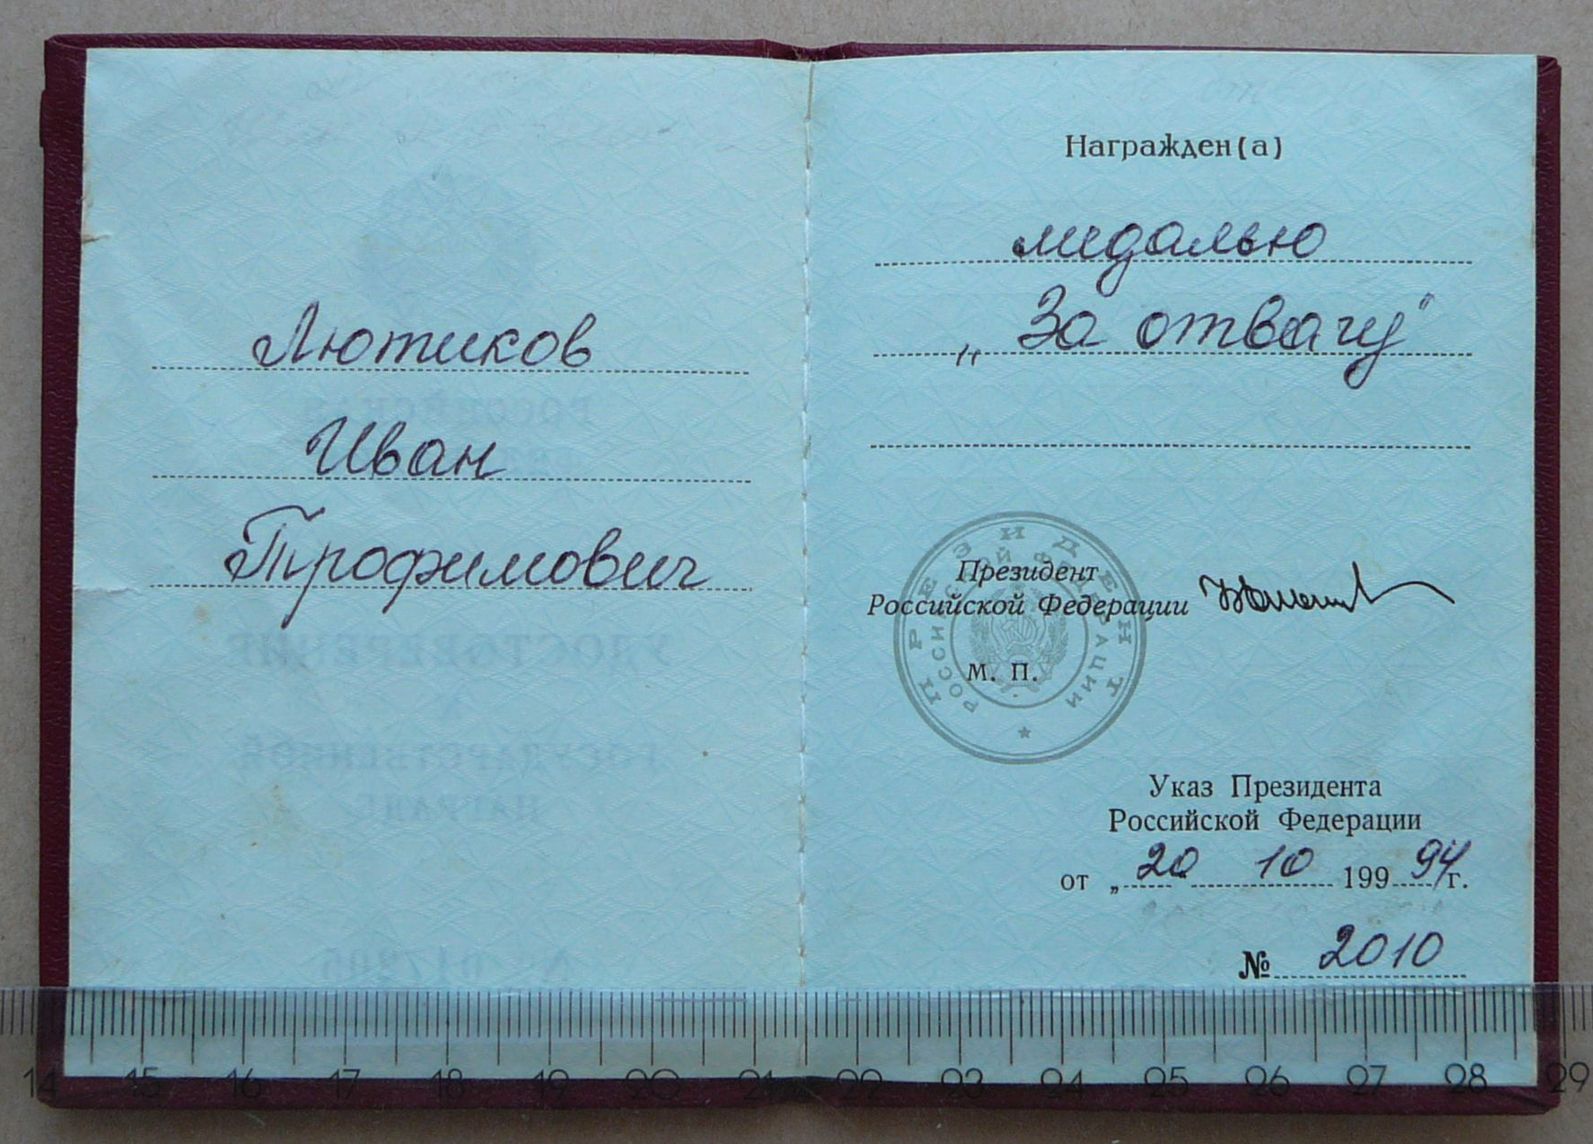 Лютиков
Иван
Трофимович
Награжден(а)
медалью
„За отвагу"
Президент
Российской Федерации
М. П.
ПРЕЗИДЕНТ
РОССИЙСКОЙ ФЕДЕРАЦИИ
Указ Президента
Российской Федерации
от „20 10 199 94 г.
№ 2010
14 15 16 17 18 19 20 21 22 23 24 25 26 27 28 29